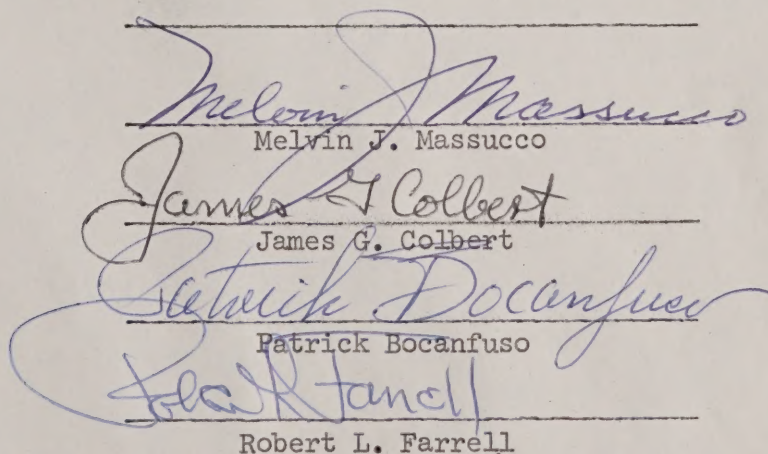 Melvin J Massucco
Melvin J. Massucco
James G Colbert
James G. Colbert
Patrick Bocanfuso
Patrick Bocanfuso
Robert L Farrell
Robert L. Farrell